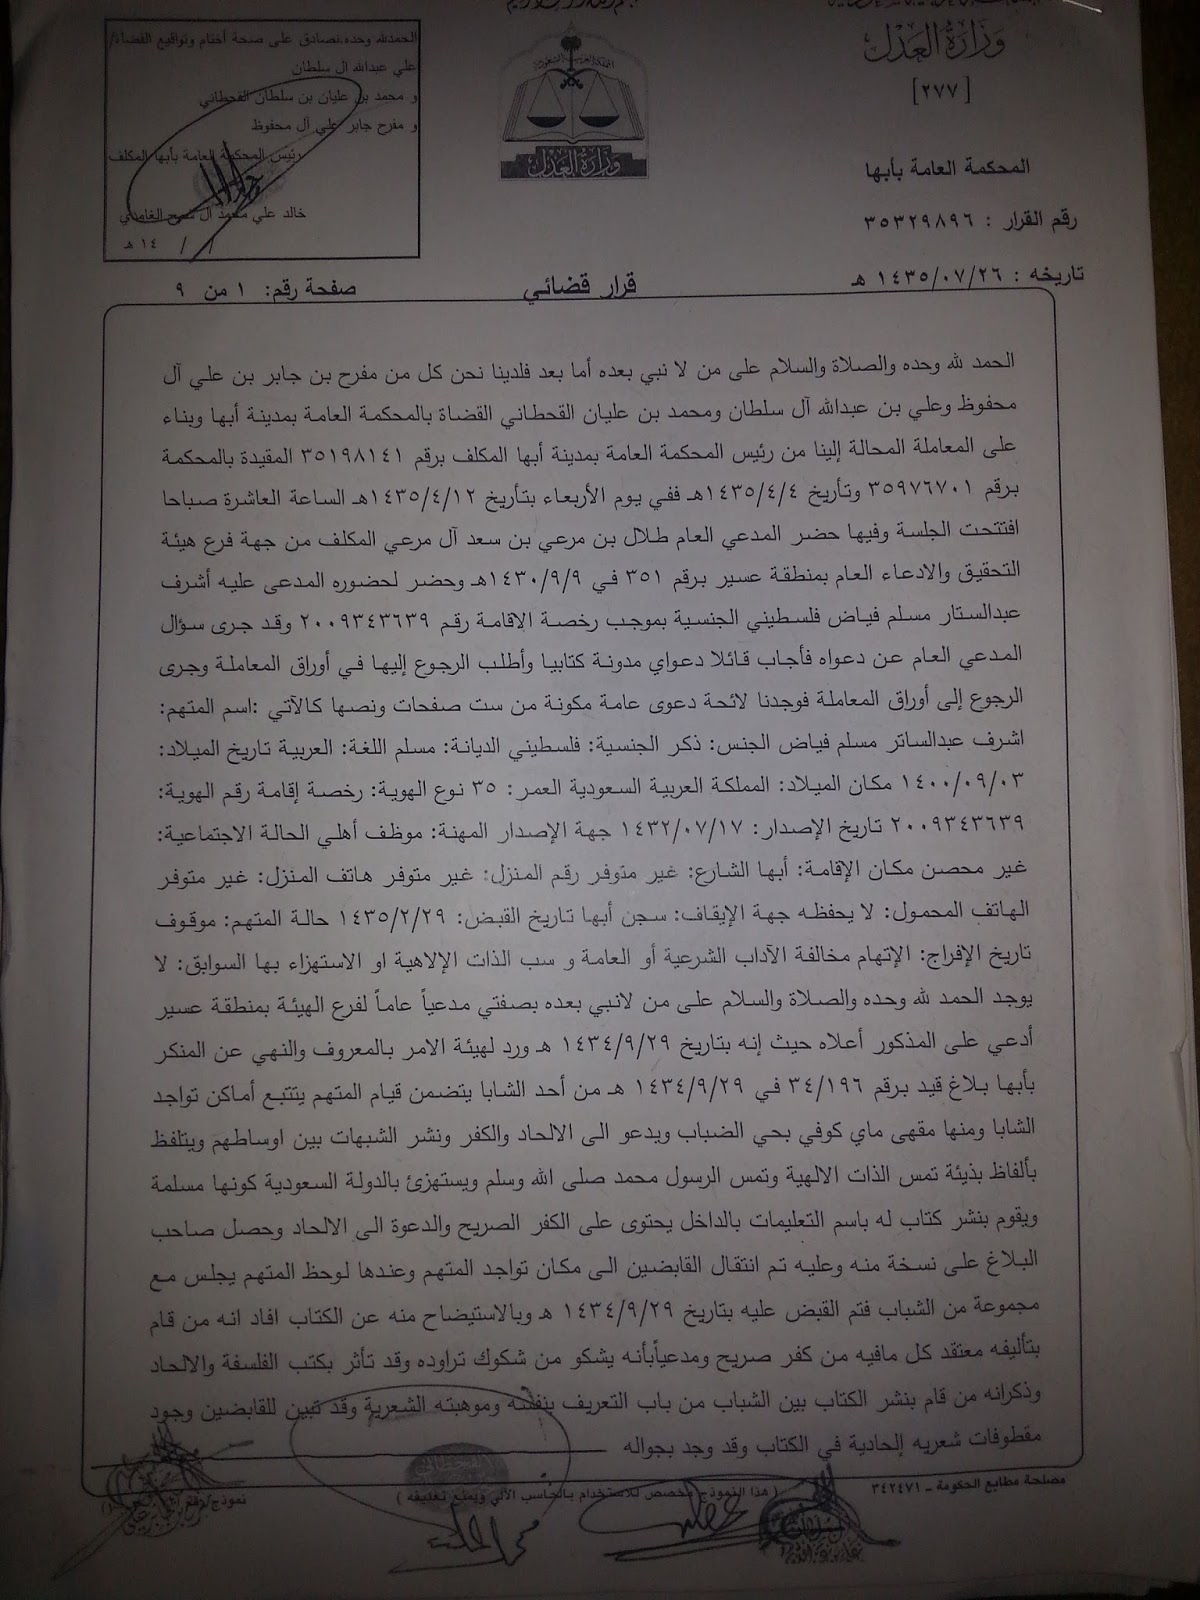 وزارة العدل
[٢٧٧]
المحكمة العامة بأبها
رقم القرار : ٣٥٣٢٩٨٩٦
تاريخه : ١٤٣٥/٠٧/٢٦ هـ
وزارة العدل
الحمدلله وحده.نصادق على صحة أختام وتواقيع القضاة/
علي عبدالله ال سلطان
و محمد بن عليان بن سلطان القحطاني
و مفرح جابر علي آل محفوظ
رئيس المحكمة العامة بأبها المكلف
خالد علي محمد آل
/ / ١٤ هـ
قرار قضائي
صفحة رقم: ١ من ٩
الحمد لله وحده والصلاة والسلام على من لا نبي بعده أما بعد فلدينا نحن كل من مفرح بن جابر بن علي آل
محفوظ وعلي بن عبدالله آل سلطان ومحمد بن عليان القحطاني القضاة بالمحكمة العامة بمدينة أبها وبناء
على المعاملة المحالة إلينا من رئيس المحكمة العامة بمدينة أبها المكلف برقم ٣٥١٩٨١٤١ المقيدة بالمحكمة
برقم ٣٥٩٧٦٧٠١ وتأريخ ١٤٣٥/٤/٤هـ ففي يوم الأربعاء بتأريخ ١٤٣٥/٤/١٢هـ الساعة العاشرة صباحا
افتتحت الجلسة وفيها حضر المدعي العام طلال بن مرعي بن سعد آل مرعي المكلف من جهة فرع هيئة
التحقيق والادعاء العام بمنطقة عسير برقم ٣٥١ في ١٤٣٠/٩/٩هـ وحضر لحضوره المدعى عليه أشرف
عبدالستار مسلم فياض فلسطيني الجنسية بموجب رخصة الإقامة رقم ٢٠٠٩٣٤٣٦٣٩ وقد جرى سؤال
المدعي العام عن دعواه فأجاب قائلا دعواي مدونة كتابيا وأطلب الرجوع إليها في أوراق المعاملة وجرى
الرجوع إلى أوراق المعاملة فوجدنا لائحة دعوى عامة مكونة من ست صفحات ونصها كالآتي :اسم المتهم:
اشرف عبدالساتر مسلم فياض الجنس: ذكر الجنسية: فلسطيني الديانة: مسلم اللغة: العربية تاريخ الميلاد:
١٤٠٠/٠٩/٠٣ مكان الميلاد: المملكة العربية السعودية العمر: ٣٥ نوع الهوية: رخصة إقامة رقم الهوية:
٢٠٠٩٣٤٣٦٣٩ تاريخ الإصدار: ١٤٣٢/٠٧/١٧ جهة الإصدار المهنة: موظف أهلي الحالة الاجتماعية:
غير محصن مكان الإقامة: أبها الشارع: غير متوفر رقم المنزل: غير متوفر هاتف المنزل: غير متوفر
الهاتف المحمول: لا يحفظه جهة الإيقاف: سجن أبها تاريخ القبض: ١٤٣٥/٢/٢٩ حالة المتهم: موقوف
تاريخ الإفراج: الإتهام مخالفة الآداب الشرعية أو العامة و سب الذات الإلاهية او الاستهزاء بها السوابق: لا
يوجد الحمد لله وحده والصلاة والسلام على من لانبي بعده بصفتي مدعياً عاماً لفرع الهيئة بمنطقة عسير
أدعي على المذكور أعلاه حيث إنه بتاريخ ١٤٣٤/٩/٢٩ هـ ورد لهيئة الامر بالمعروف والنهي عن المنكر
بأبها بلاغ قيد برقم ٣٤/١٩٦ في ١٤٣٤/٩/٢٩ هـ من أحد الشابا يتضمن قيام المتهم يتتبع أماكن تواجد
الشابا ومنها مقهى ماي كوفي بحي الضباب ويدعو الى الالحاد والكفر ونشر الشبهات بين اوساطهم ويتلفظ
بألفاظ بذيئة تمس الذات الالهية وتمس الرسول محمد صلى الله وسلم ويستهزئ بالدولة السعودية كونها مسلمة
ويقوم بنشر كتاب له باسم التعليمات بالداخل يحتوى على الكفر الصريح والدعوة الى الالحاد وحصل صاحب
البلاغ على نسخة منه وعليه تم انتقال القابضين الى مكان تواجد المتهم وعندها لوحظ المتهم يجلس مع
مجموعة من الشباب فتم القبض عليه بتاريخ ١٤٣٤/٩/٢٩ هـ وبالاستيضاح منه عن الكتاب افاد انه من قام
بتأليفه معتقد كل مافيه من كفر صريح ومدعياًبأنه يشكو من شكوك تراوده وقد تأثر بكتب الفلسفة والالحاد
وذكرانه من قام بنشر الكتاب بين الشباب من باب التعريف بنفسه وموهبته الشعرية وقد تبين للقابضين وجود
مقطوفات شعريه إلحادية في الكتاب وقد وجد بجواله
مصلحة مطابع الحكومة ـ ٣٤٢٤٧١
( هذا النموذج مخصص للاستخدام بالحاسب الآلي ويمنع تغليفه )
نموذج رقم